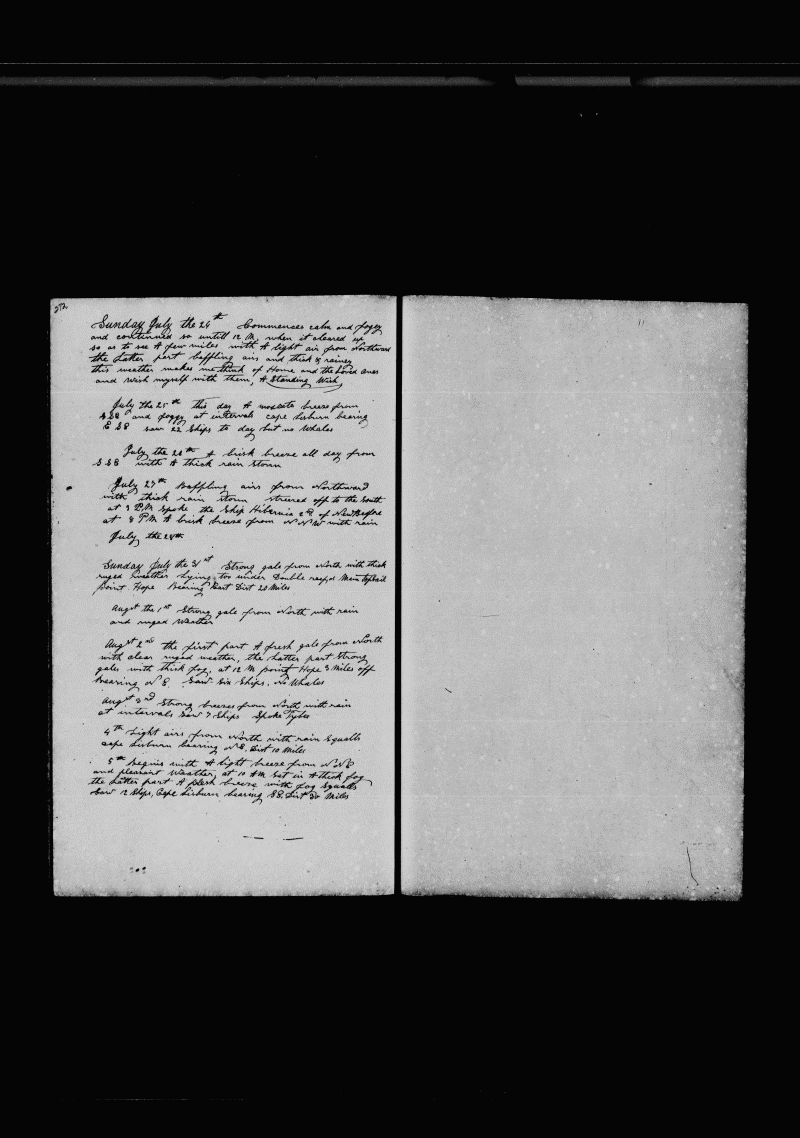 Sunday July the 24th Commences calm and foggy
and continued so untill 12 M, when it cleared up
so as to see A few miles with A light air from Northward
the Latter part baffling airs and thick & rainey
this weather makes me think of Home and the Loved ones
and wish myself with them, A Standing Wish
July the 25th this day A moderate breeze from
SSE and foggy at intervals cape Lisburn bearing
ESE saw 22 Ships to day but no Whales
July the 26th A brisk breeze all day from
SSE with A thick rain Storm
July 27th Baffling airs from Northward
with thick rain storm steered off to the South
at 3 P.M Spoke the Ship Hibernia 2d of New Bedford
at 8 P.M A brisk breeze from NNW with rain
July the 28th
Sunday July the 31st Strong gale from North with thick
ruged weather Lying too under Double reefed Main topsail
point Hope Bearing East Dist 20 Miles
Augst the 1st Strong gale from North with rain
and ruged Weather
Augst 2nd the first part A fresh gale from North
with clear ruged weather, the Latter part Strong
gales with thick fog, at 12 M point Hope 3 Miles off
bearing N E. Saw Six Ships, No Whales
Augst 3rd Strong breezes from North with rain
at intervals Saw 7 Ships Spoke Tybee
4th Light airs from North with rain Squalls
cape Lisburn bearing N E. Dist 10 Miles
5th Begins with A light breeze from NNE
and pleasant Weather, at 10 AM Set in A thick fog
the Latter part A fresh breeze with fog Squalls
Saw 12 Ships, Cape Lisburn bearing SE. Dist 30 Miles